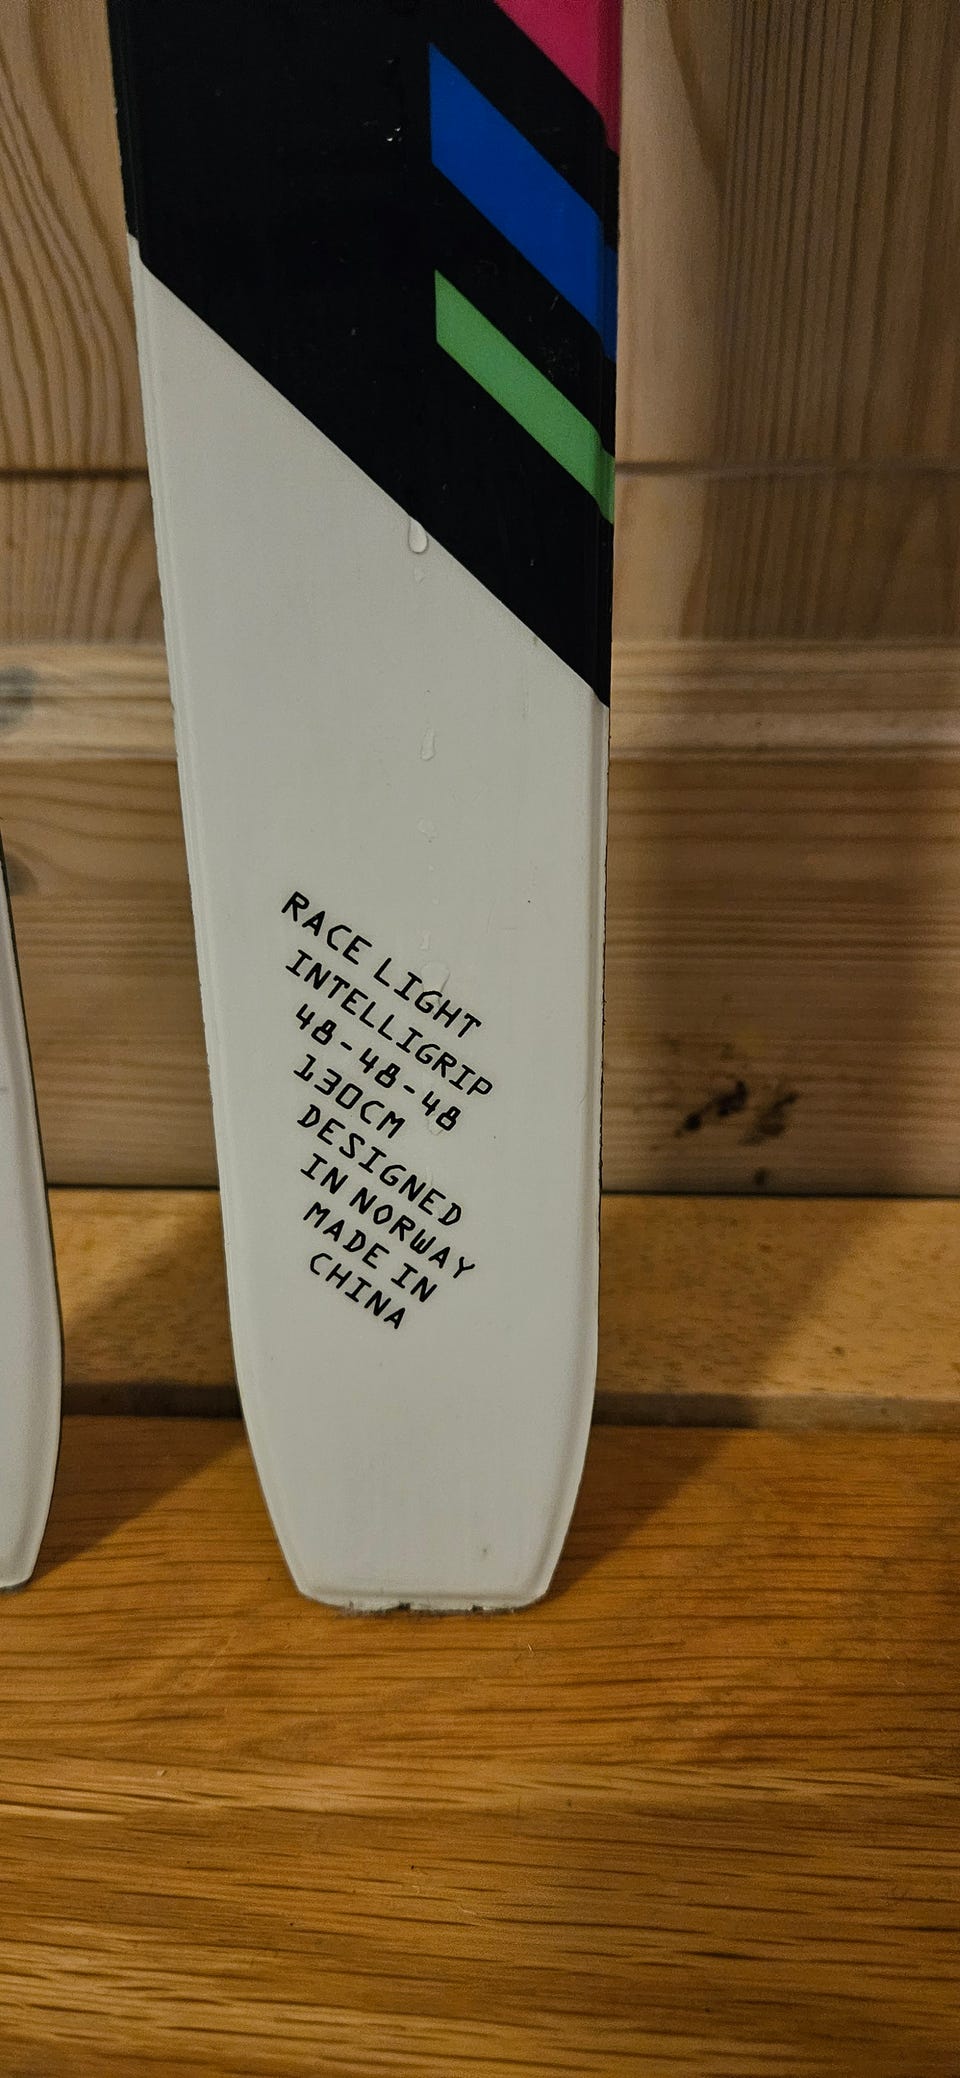 RACE LIGHT
INTELLIGRIP
48-48-48
130CM
DESIGNED
IN NORWAY
MADE IN
CHINA